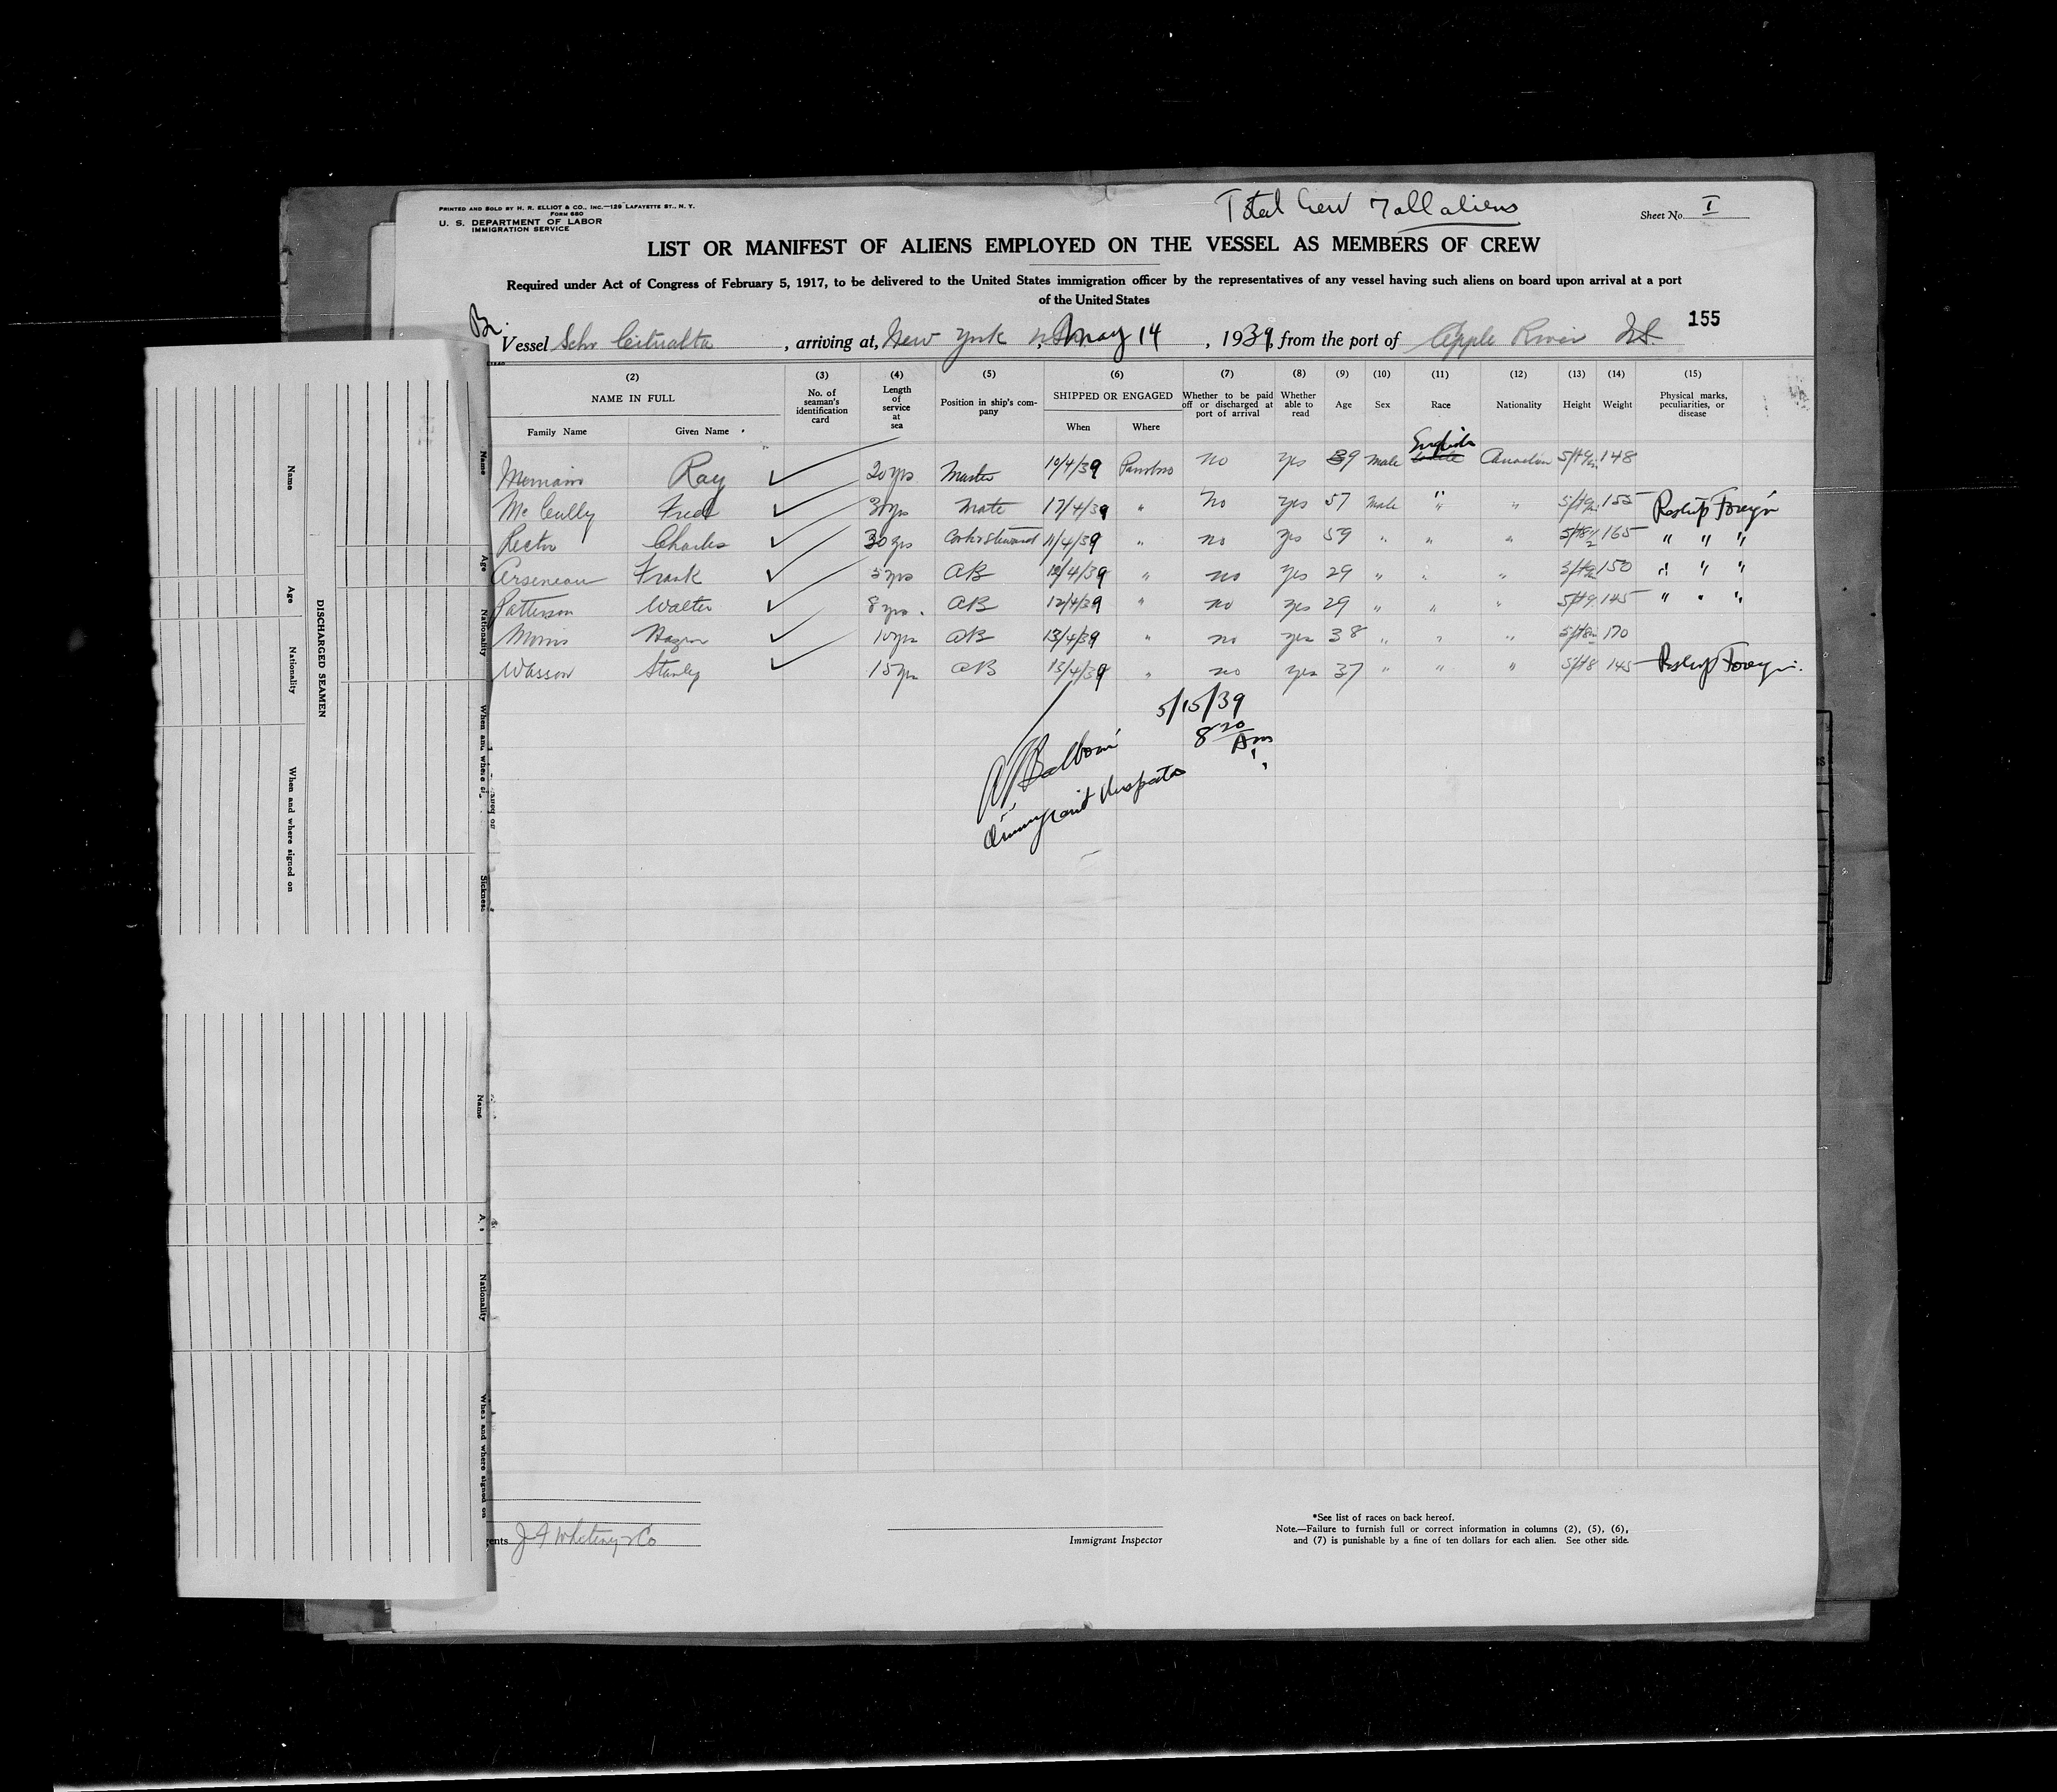 PRINTED AND SOLD BY H. R. ELLIOT & CO., INC.—129 LAFAYETTE ST., N. Y.
FORM 680
U. S. DEPARTMENT OF LABOR
IMMIGRATION SERVICE
Total Crew 7 all aliens
Sheet No. I
LIST OR MANIFEST OF ALIENS EMPLOYED ON THE VESSEL AS MEMBERS OF CREW
Required under Act of Congress of February 5, 1917, to be delivered to the United States immigration officer by the representatives of any vessel having such aliens on board upon arrival at a port
of the United States
155
Br.
Vessel Schr , arriving at, New York May 14 , 1939, from the port of Apple River N.S.
(2) (3) (4) (5) (6) (7) (8) (9) (10) (11) (12) (13) (14) (15)
NAME IN FULL
Family Name Given Name
No. of seaman's identification card
Length of service at sea
Position in ship's company
SHIPPED OR ENGAGED
When Where
Whether to be paid off or discharged at port of arrival
Whether able to read
Age
Sex
Race
Nationality
Height
Weight
Physical marks, peculiarities, or disease
Ray 20 yrs Master 10/4/39 no yes 39 male English Canadian 148
Mc Cully Fred yrs Mate 17/4/39 " no yes 57 male " " 155 Reship Foreign
Rector Charles 30 yrs Cook & Steward 11/4/39 " no yes 59 " " " 165 " " "
Arseneau Frank 5 yrs AB 12/4/39 " no yes 29 " " " 150 " " "
Patterson Walter 8 yrs. AB 12/4/39 " no yes 29 " " " 145 " " "
Morris 10 yrs AB 13/4/39 " no yes 38 " " " 170
Wasson Stanley 15 yrs AB 13/4/39 " no yes 37 " " " 5ft8 145 Reship Foreign.
5/15/39
8 20 Am
Immigrant Inspector
DISCHARGED SEAMEN
Name
Age
Nationality
When and where signed on
Name
Age
Nationality
Sickness
Name
Nationality
When and where signed on
J F Whitney & Co
Immigrant Inspector
*See list of races on back hereof.
Note.—Failure to furnish full or correct information in columns (2), (5), (6),
and (7) is punishable by a fine of ten dollars for each alien. See other side.